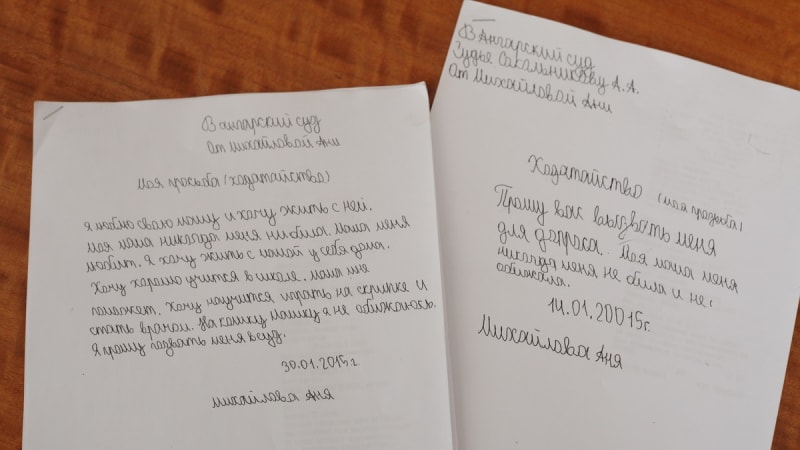 В ангарский суд
От Михайловой Ани
Моя просьба (ходатайство)
я люблю сваю мащу и хачу жить с ней.
мая мама никагда меня ни била. Мама меня
любит. Я хачу жить с мамой у себя дома.
Хачу харашо учится в школе. Мама мне
паможет. Хачу научится играть на скрипке и
стать врачом. На кошку Машку я не абижаюсь.
Я прашу пазвать меня в суд.
30.01.2015 г.
Михайлова Аня
В Ангарский суд
Зудье Сакальникову А.А.
От Михайловой Ани
Ходатайство (моя прозьба)
Прашу вас вызвать меня
для допраса. Моя мама меня
никагда меня не била и не
абижала.
14.01.20015г.
Михайлова Аня